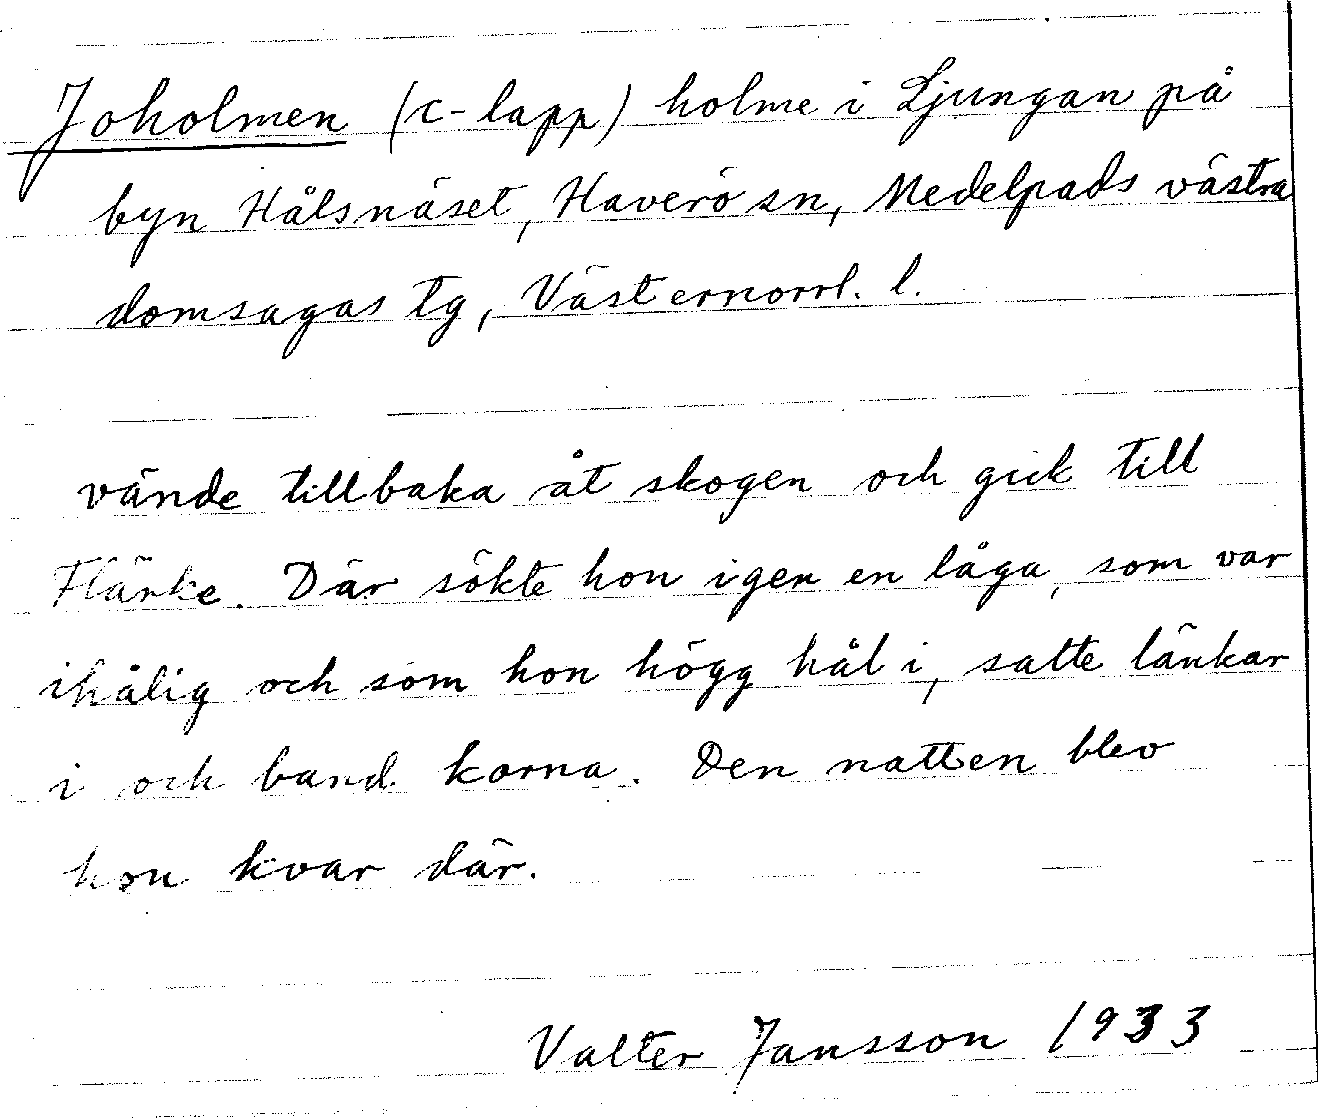 Joholmen (c-lapp) holme i Ljungan på
byn Hålsnäset, Haverö sn, Medelpads västra
domsagas tg, Västernorrl. l.
vände tillbaka åt skogen och gick till
Flärke. Där sökte hon igen en låga, som var
ihålig och som hon högg hål i, satte länkar
i och band korna. Den natten blev
hon kvar där.
Valter Jansson 1933